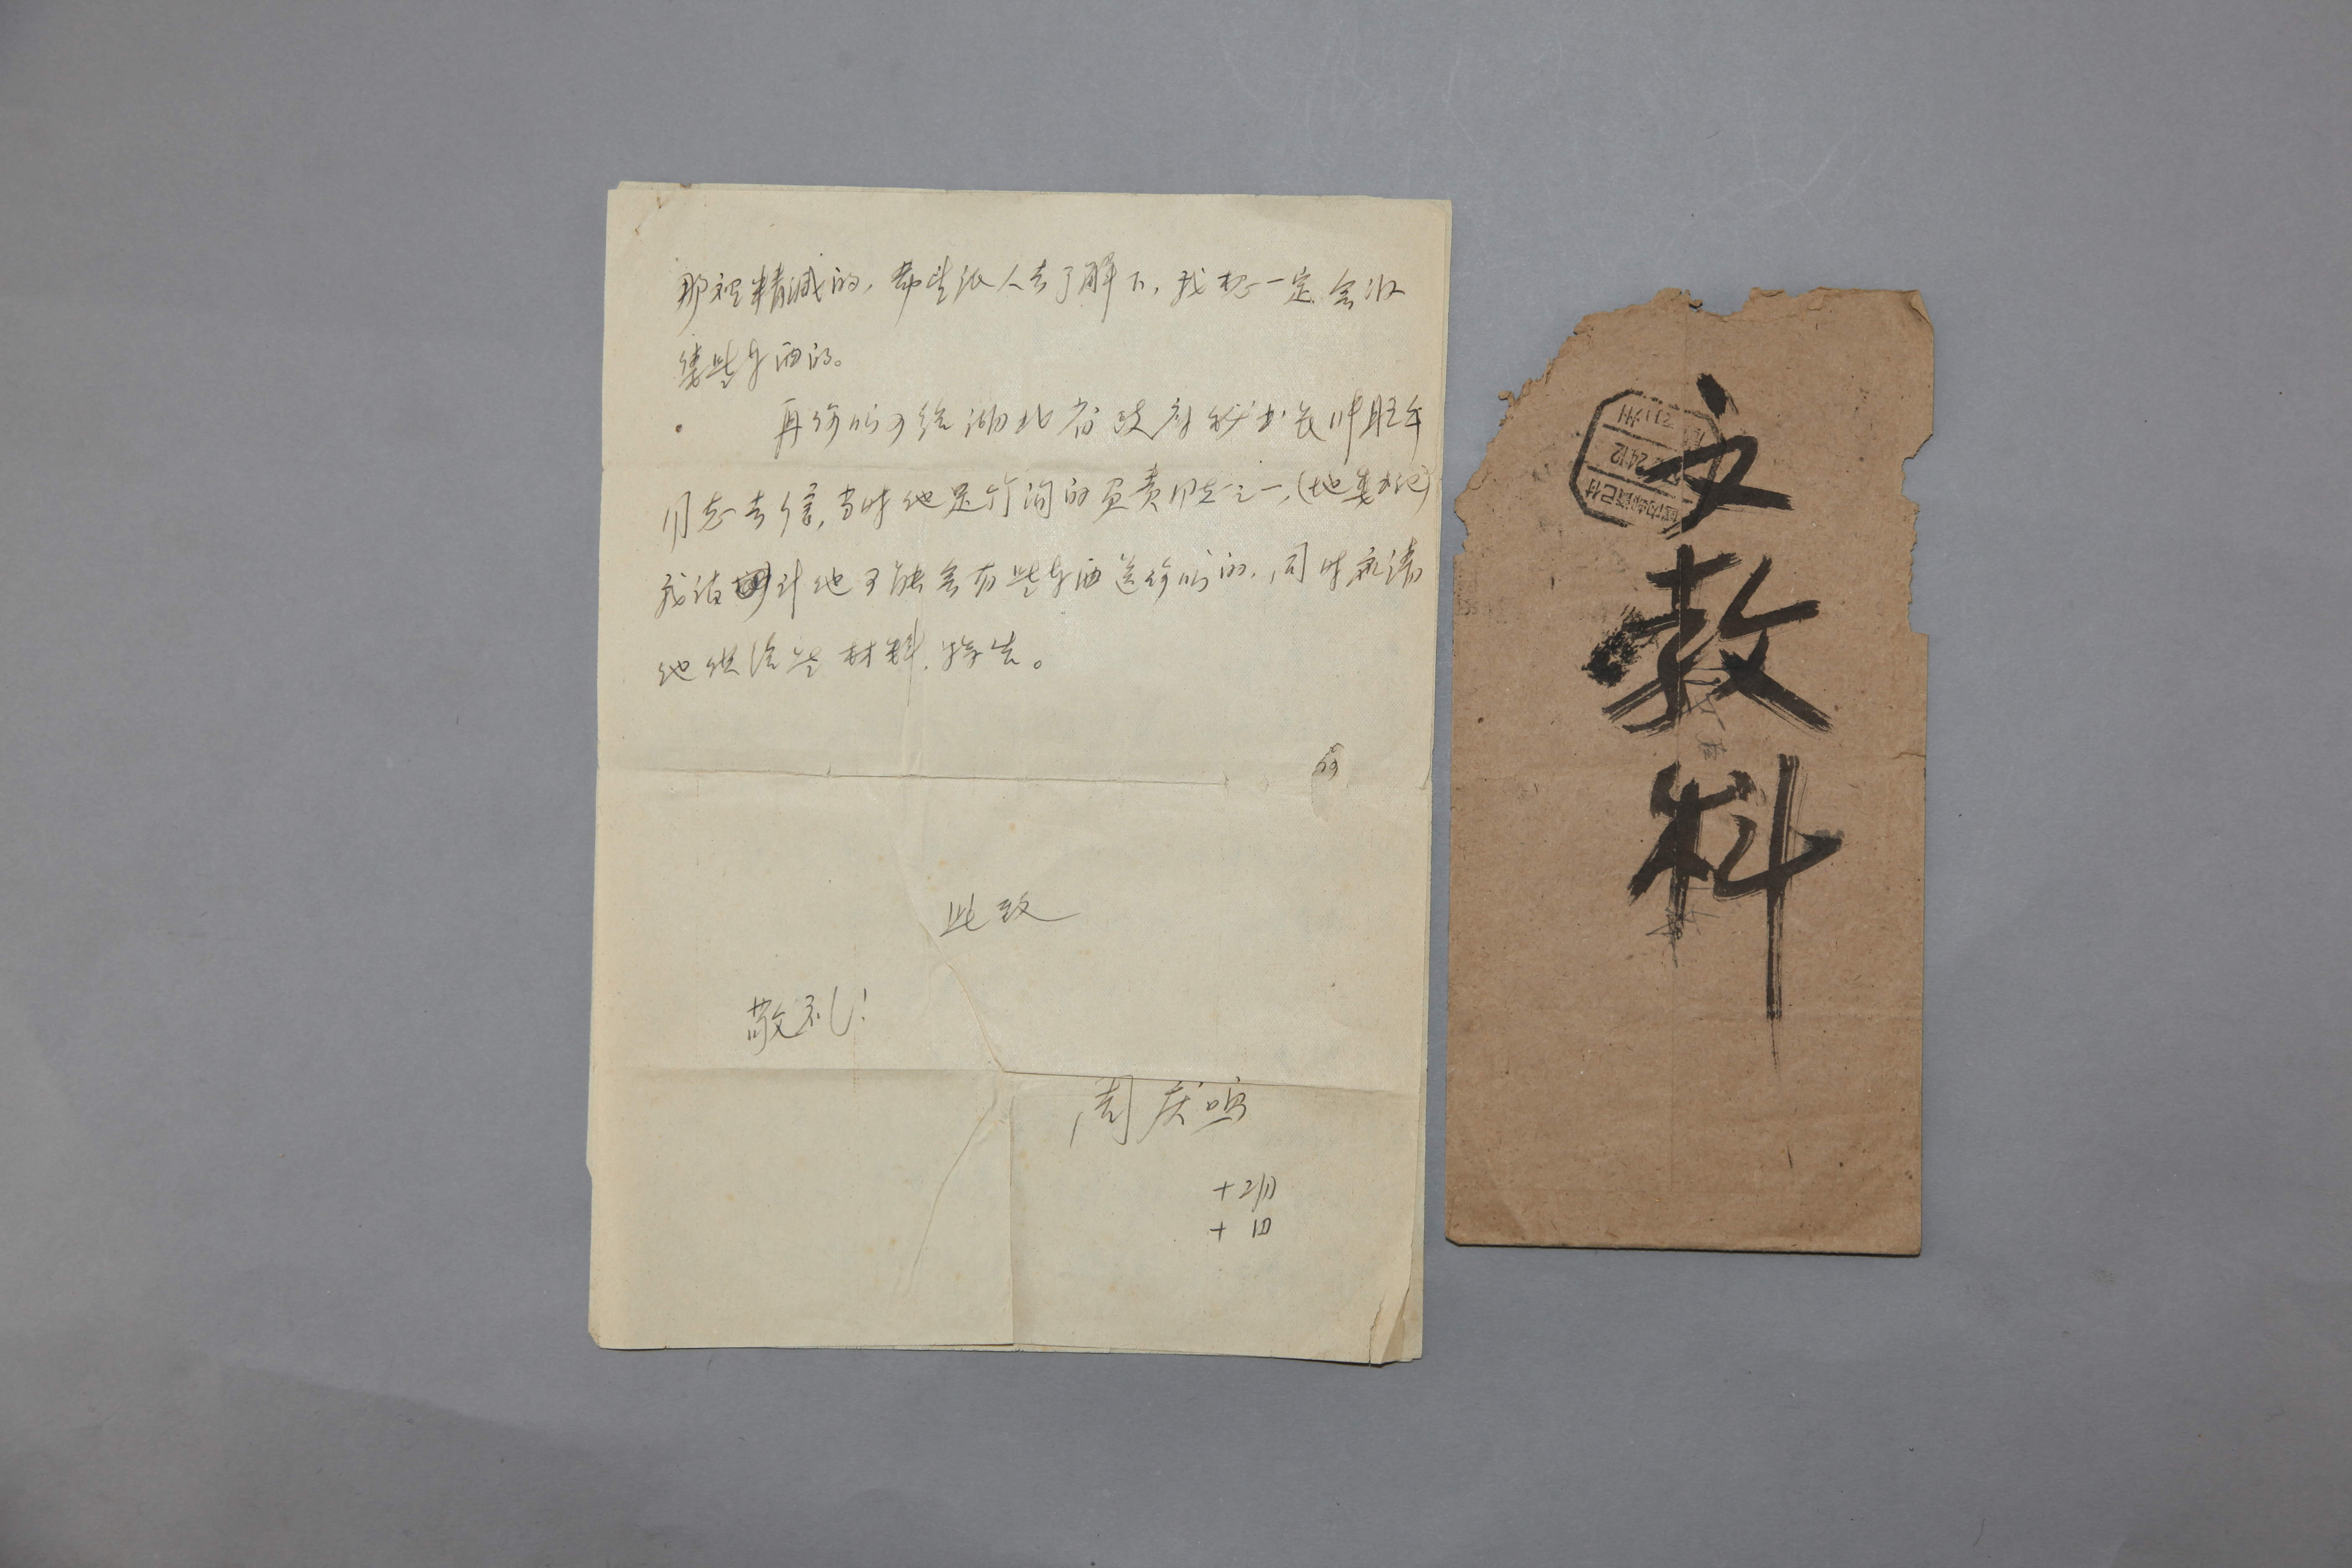 那裡精减的，希望派人去了解下，我想一定会收
集些东西的。
再你们可给湖北省政府秘书长帅旺午
同志去信，当时他是竹沟的负责同志之一，(地委书记)
我估计他可能会有些东西送你们的，同时亦请
他供给些材料，特告。
此致
敬礼！
周庆鸣
十二月
十日
文
教
科
2412
国内邮资已付